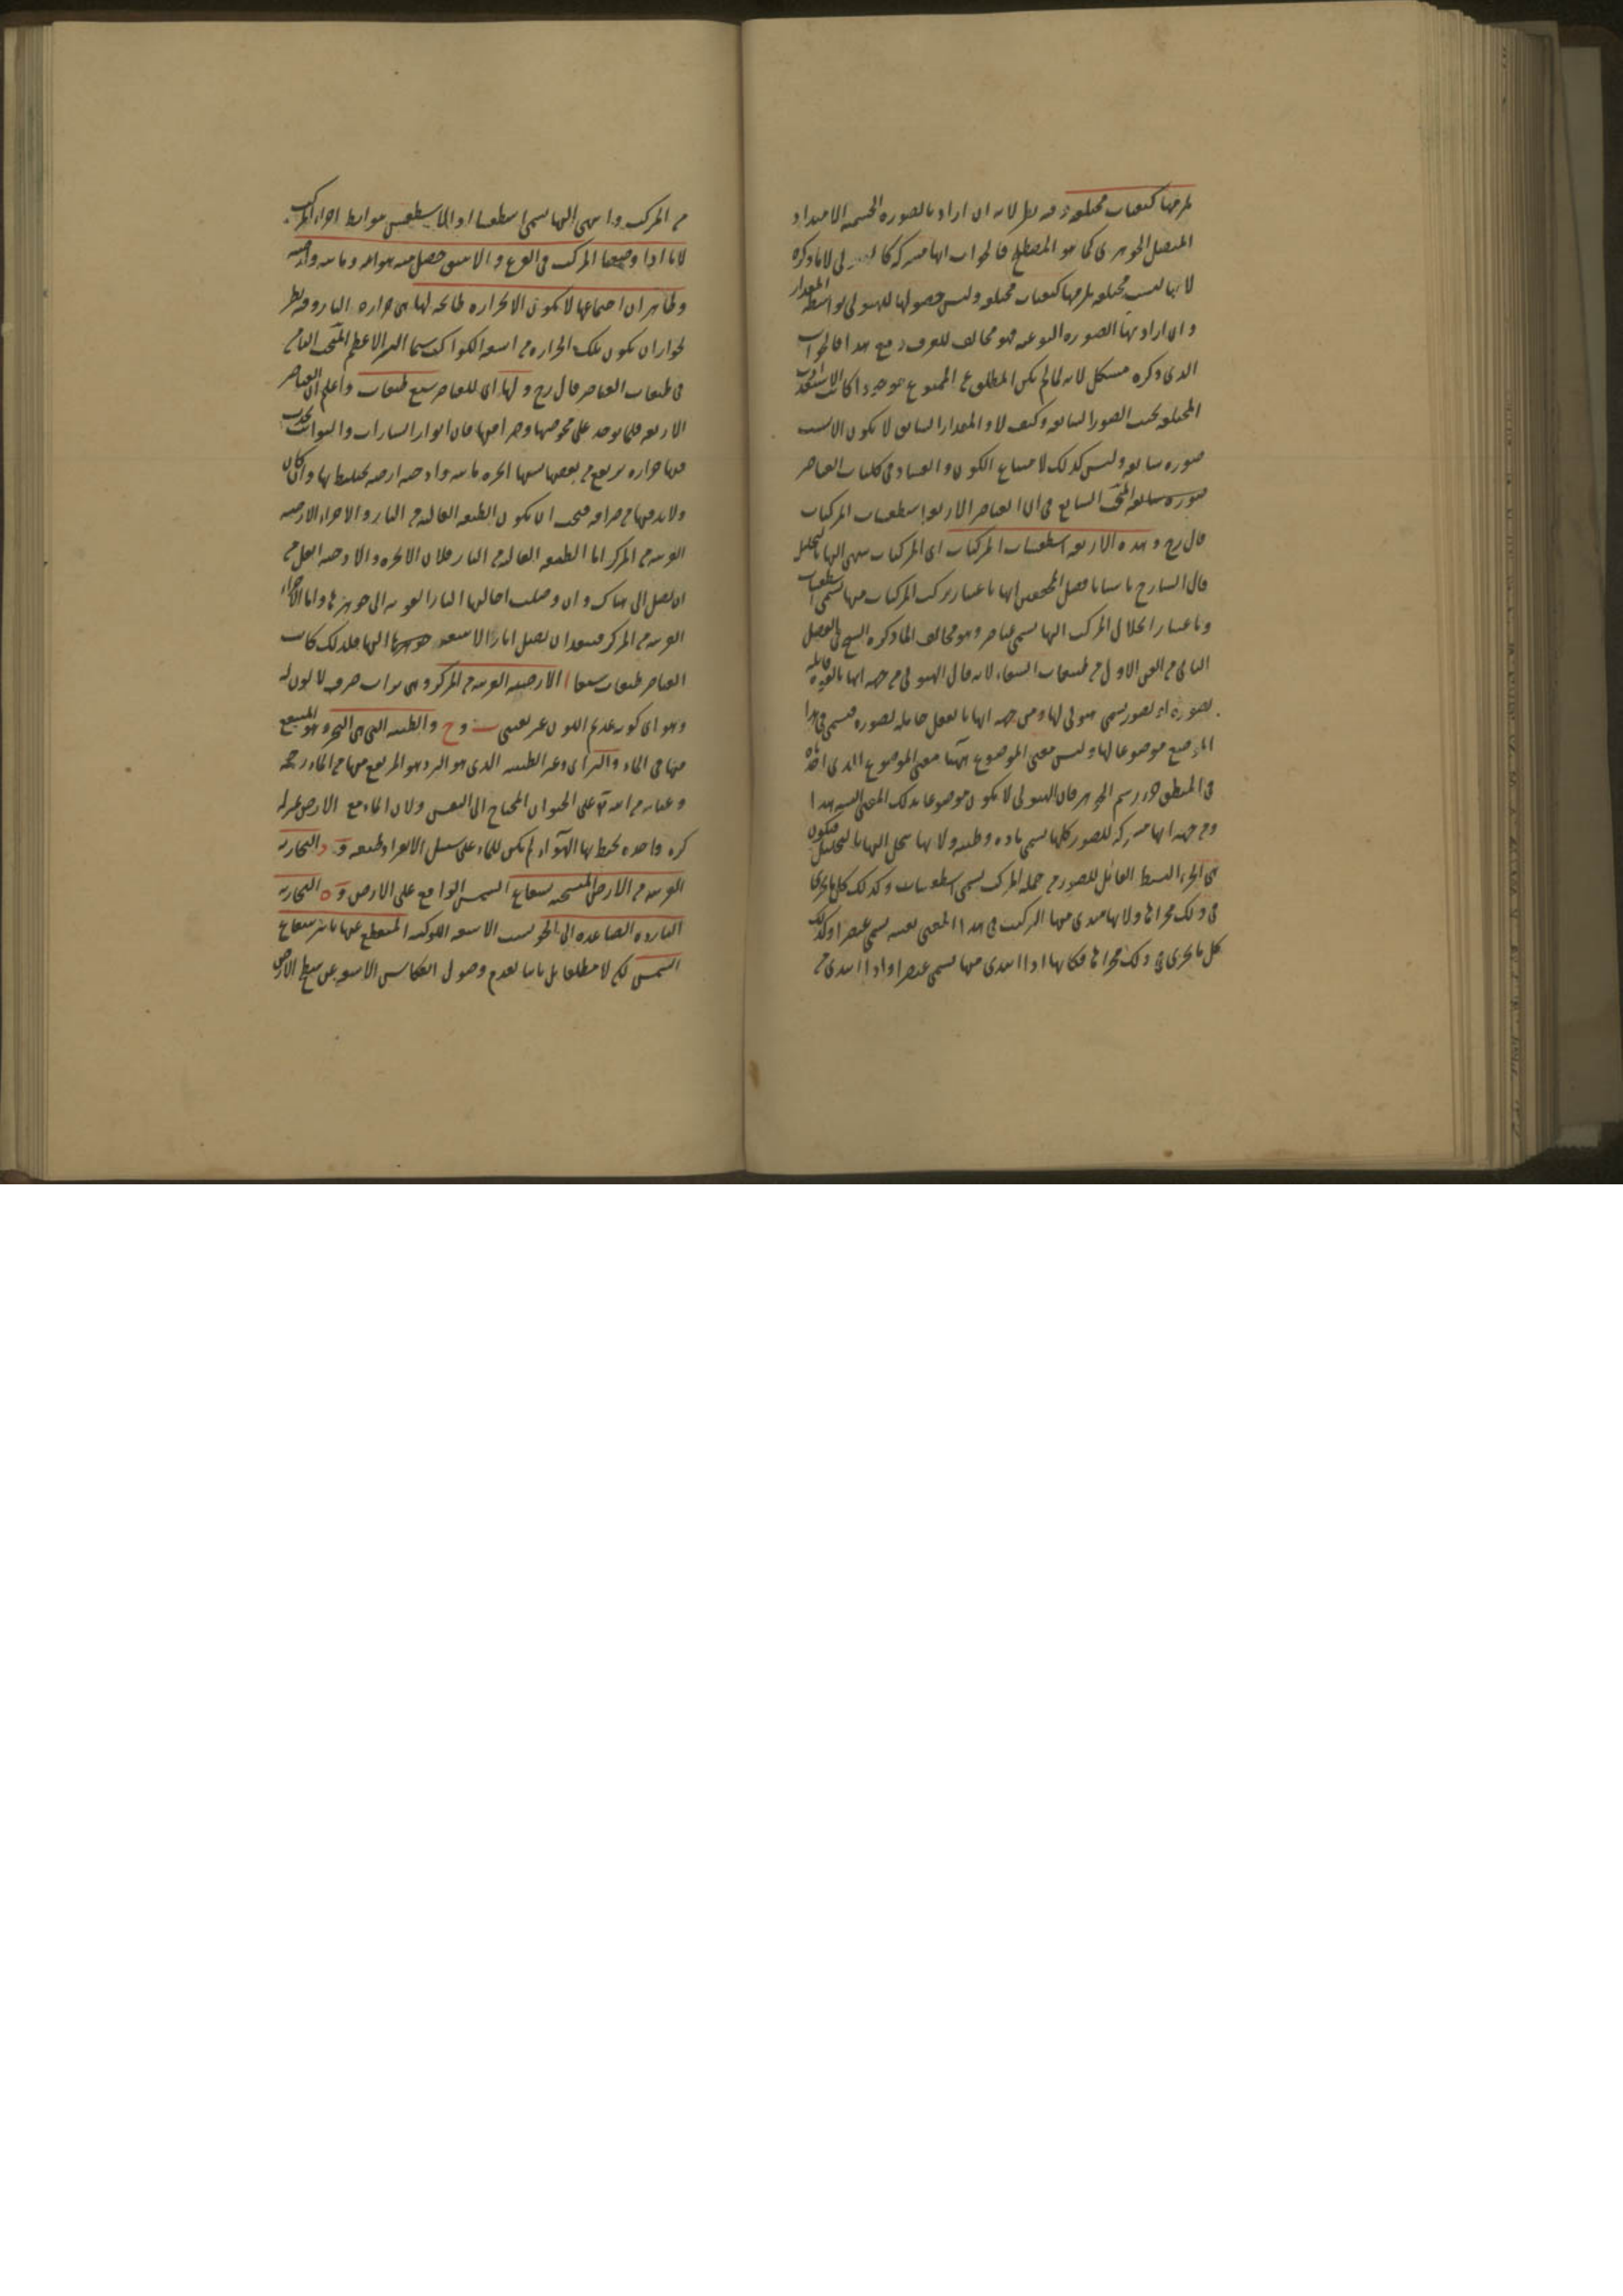 يلزمها كيفيات مختلفة وفيه نظر لانه ان اراد بالصورة الجسمية الامتداد
المتصل الجوهري كما هو المصطلح فالجواب انها مشتركة كالهيولى لا ما ذكره
لانها ليست مختلفة يلزمها كيفيات مختلفة وليس حصولها للهيولى بواسطة المقدار
وان اراد بها الصورة النوعية فهو مخالف للعرف ومع هذا فالجواب
الذي ذكره مشكل لانه لما لم يكن المطلوع الممنوع موجودا كانت الاستعدادات
المختلفة بحسب الصور السابقة وكيف لا والمقدار السابق لا يكون الا بسبب
صورة سابقة وليس كذلك لامتناع الكون والفساد في كليات العناصر
صورة سابقة المبحث السابع في ان العناصر الاربعة اسطقسات المركبات
قال رح وهذه الاربعة اسطقسات المركبات اى المركبات ينتهي اليها بالتحليل
قال الشارح باسيا بافضل المحققين انها باعتبار تركب المركبات منها تسمى اسطقسات
وباعتبار انحلال المركب اليها تسمى عناصر وهو مخالف لما ذكره الشيخ في الفصل
الثاني من الفن الاول من طبيعيات الشفاء لانه قال الهيولى من جهة انها بالقوة قابلة
لصورة او لصور تسمى هيولى لها ومن جهة انها بالفعل حاملة لصورة فتسمى في هذا
الموضع موضوعا لها وليس معنى الموضوع ههنا معنى الموضوع الذي اخذناه
في المنطق جزء رسم الجوهر فان الهيولى لا يكون موضوعا بذلك المعنى البتة هذا
ومن جهة انها مشتركة للصور كلها تسمى مادة وطينة ولانها تنحل اليها بالتحليل فيكون
هي الجزء البسيط القابل للصورة من جملة المركب تسمى اسطقسا وكذلك كل ما يجري
في ذلك مجراها ولانها يبتدئ منها التركيب في هذا المعنى بعينه تسمى عنصرا وكذلك
كل ما يجري في ذلك مجراها فكانها اذا ابتدئ منها تسمى عنصرا واذا ابتدئ من
من المركب وانتهى اليها تسمى اسطقسا اذ الاسطقس هو ابسط اجزاء المركب
لانا اذا وضعنا المركب في القرع والانبيق حصل منه هوائية ومائية وارضية
وظاهر ان اجتماعها لا يكون الا لحرارة طابخة لها هي حرارة النار وفيه نظر
لجواز ان يكون تلك الحرارة من اشعة الكواكب سيما النير الاعظم المبحث الثامن
في طبقات العناصر قال رح ولها اى للعناصر سبع طبقات واعلم ان العناصر
الاربعة قلما توجد على محوضتها وصرافتها فان انوار السيارات والثوابت تحدث
فيها حرارة يرتفع من بعضها بسببها ابخرة مائية وادخنة ارضية تختلط بها وان كان
ولا بد فيها من صرافة فيجب ان يكون الطبقة العالية من النار والاجزاء الارضية
القريبة من المركز اما الطبقة العالية من النار فلان الابخرة والادخنة اثقل من
ان يصل الى هناك وان وصلت احالتها النار القوية الى جوهرها واما الاجزاء
القريبة من المركز فيبعد ان يصل اثار الاشعة اليها فلذلك كانت
العناصر طبقات سبعا ا الارضية القريبة من المركز وهي تراب صرف لا لون له
وهو اى كونه عديم اللون غير يقيني ب و ج والطينية التي هي البحر وهو المجتمع
منها في الماء والبر اى وغير الطينية الذي هو البر وهو المرتفع منها من الماء رحمة
وعناية من الله تع على الحيوان المحتاج الى التنفس ولان الماء مع الارض بمنزلة
كرة واحدة يحيط بها الهواء لم يكن للماء على سبيل الانفراد طبقة و د البخارية
القريبة من الارض المتسخنة بشعاع الشمس الواقع على الارض و ه البخارية
الباردة الصاعدة الى الجو بسبب الاشعة الكوكبية المنقطع عنها تاثير شعاع
الشمس لكن لا مطلقا بل باسا لعدم وصول انعكاس الاشعة عن سطح الارض